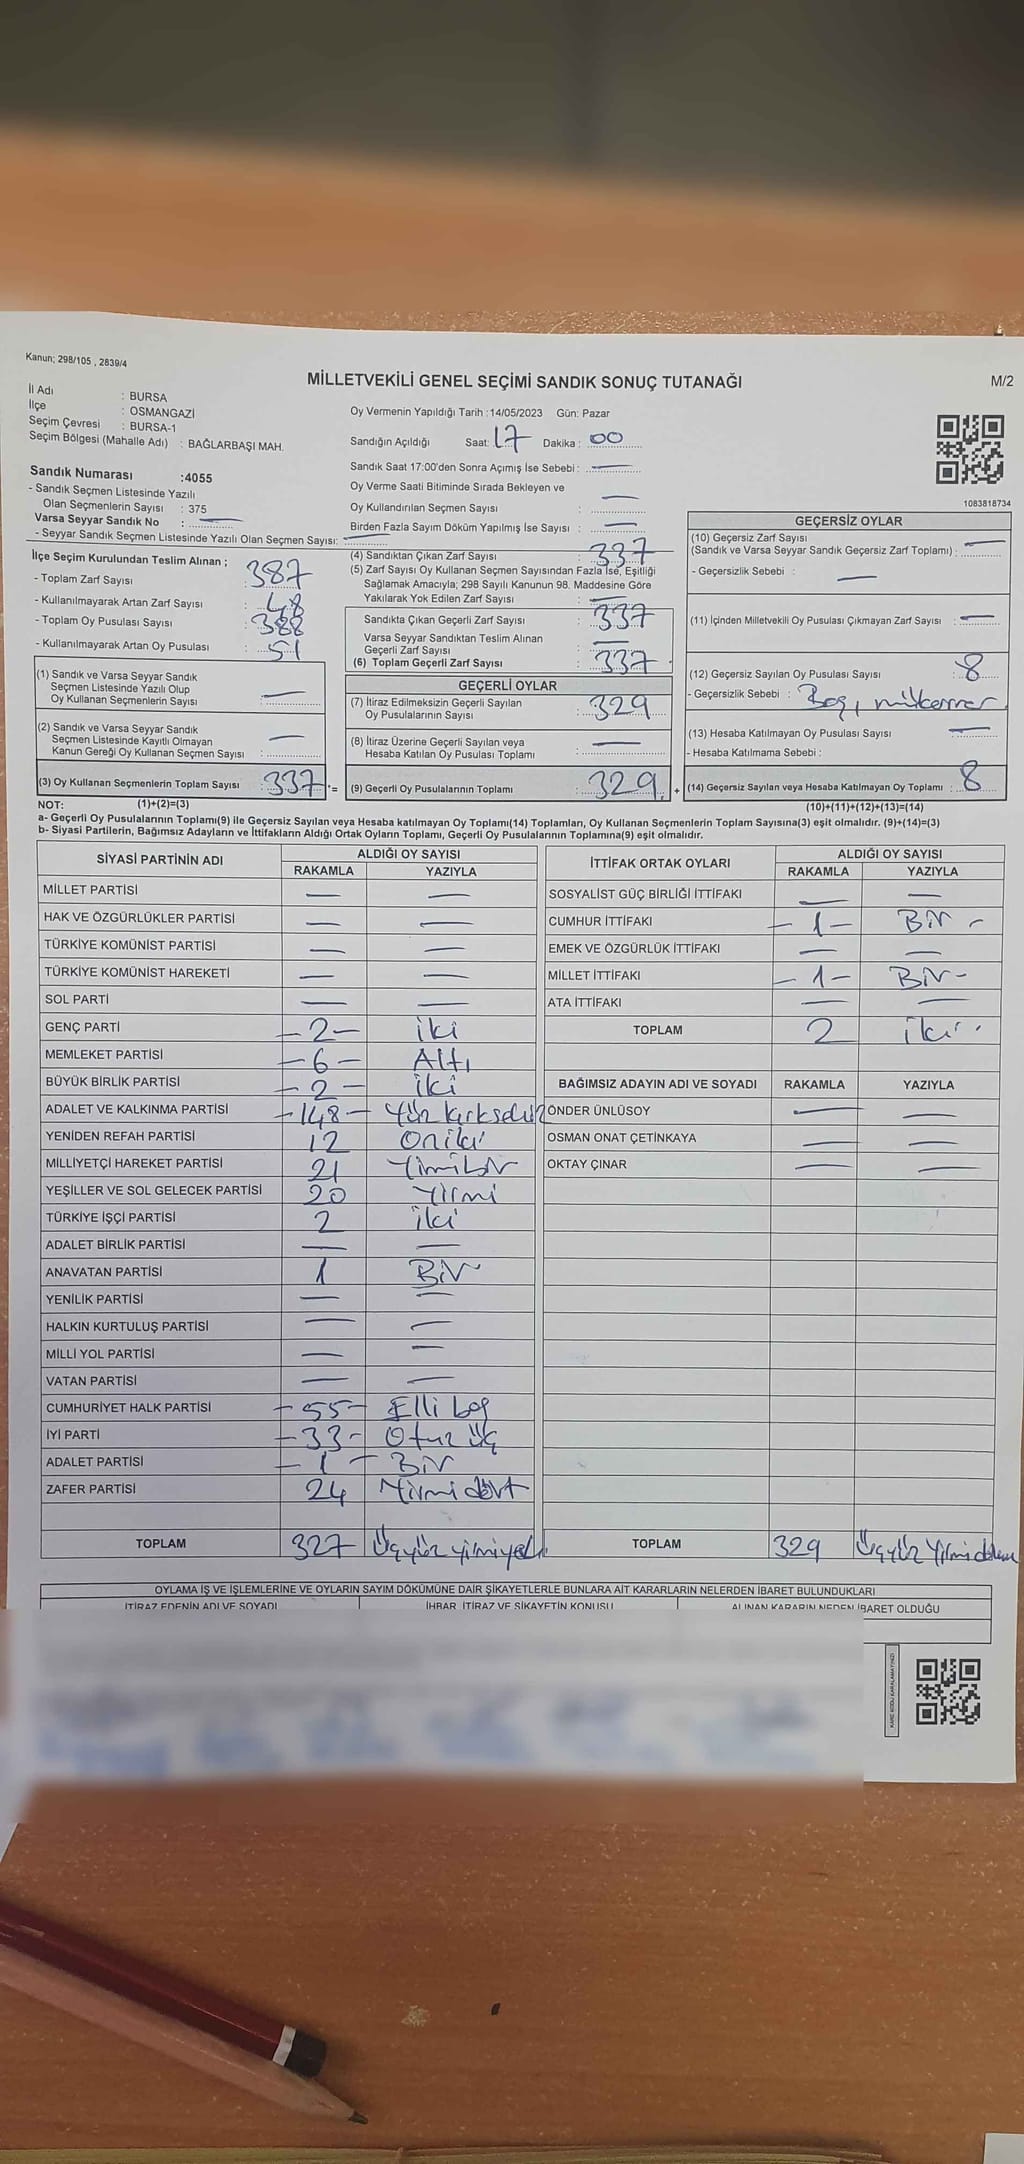 Kanun; 298/105 , 2839/4
MİLLETVEKİLİ GENEL SEÇİMİ SANDIK SONUÇ TUTANAĞI
M/2
İl Adı : BURSA
İlçe : OSMANGAZİ
Seçim Çevresi : BURSA-1
Seçim Bölgesi (Mahalle Adı) : BAĞLARBAŞI MAH.
Oy Vermenin Yapıldığı Tarih :14/05/2023 Gün: Pazar
Sandığın Açıldığı Saat: 17 Dakika : 00
Sandık Saat 17:00'den Sonra Açımış İse Sebebi : —
Oy Verme Saati Bitiminde Sırada Bekleyen ve
Oy Kullandırılan Seçmen Sayısı : —
Birden Fazla Sayım Döküm Yapılmış İse Sayısı : —
1083818734
Sandık Numarası :4055
- Sandık Seçmen Listesinde Yazılı
Olan Seçmenlerin Sayısı : 375
Varsa Seyyar Sandık No : —
- Seyyar Sandık Seçmen Listesinde Yazılı Olan Seçmen Sayısı: —
İlçe Seçim Kurulundan Teslim Alınan ;
- Toplam Zarf Sayısı : 387
- Kullanılmayarak Artan Zarf Sayısı : 48
- Toplam Oy Pusulası Sayısı : 388
- Kullanılmayarak Artan Oy Pusulası : 51
(1) Sandık ve Varsa Seyyar Sandık
Seçmen Listesinde Yazılı Olup
Oy Kullanan Seçmenlerin Sayısı : —
(2) Sandık ve Varsa Seyyar Sandık
Seçmen Listesinde Kayıtlı Olmayan
Kanun Gereği Oy Kullanan Seçmen Sayısı : —
(3) Oy Kullanan Seçmenlerin Toplam Sayısı : 337 =
(4) Sandıktan Çıkan Zarf Sayısı : 337
(5) Zarf Sayısı Oy Kullanan Seçmen Sayısından Fazla İse, Eşitliği
Sağlamak Amacıyla; 298 Sayılı Kanunun 98. Maddesine Göre
Yakılarak Yok Edilen Zarf Sayısı : —
Sandıkta Çıkan Geçerli Zarf Sayısı : 337
Varsa Seyyar Sandıktan Teslim Alınan
Geçerli Zarf Sayısı : —
(6) Toplam Geçerli Zarf Sayısı : 337
GEÇERLİ OYLAR
(7) İtiraz Edilmeksizin Geçerli Sayılan
Oy Pusulalarının Sayısı : 329
(8) İtiraz Üzerine Geçerli Sayılan veya
Hesaba Katılan Oy Pusulası Toplamı : —
(9) Geçerli Oy Pusulalarının Toplamı : 329 +
GEÇERSİZ OYLAR
(10) Geçersiz Zarf Sayısı
(Sandık ve Varsa Seyyar Sandık Geçersiz Zarf Toplamı) : —
- Geçersizlik Sebebi : —
(11) İçinden Milletvekili Oy Pusulası Çıkmayan Zarf Sayısı : —
(12) Geçersiz Sayılan Oy Pusulası Sayısı : 8
- Geçersizlik Sebebi : Boş, mükerrer
(13) Hesaba Katılmayan Oy Pusulası Sayısı : —
- Hesaba Katılmama Sebebi :
(14) Geçersiz Sayılan veya Hesaba Katılmayan Oy Toplamı : 8
NOT: (1)+(2)=(3)
(10)+(11)+(12)+(13)=(14)
a- Geçerli Oy Pusulalarının Toplamı(9) ile Geçersiz Sayılan veya Hesaba katılmayan Oy Toplamı(14) Toplamları, Oy Kullanan Seçmenlerin Toplam Sayısına(3) eşit olmalıdır. (9)+(14)=(3)
b- Siyasi Partilerin, Bağımsız Adayların ve İttifakların Aldığı Ortak Oyların Toplamı, Geçerli Oy Pusulalarının Toplamına(9) eşit olmalıdır.
SİYASİ PARTİNİN ADI ALDIĞI OY SAYISI
RAKAMLA YAZIYLA
MİLLET PARTİSİ — —
HAK VE ÖZGÜRLÜKLER PARTİSİ — —
TÜRKİYE KOMÜNİST PARTİSİ — —
TÜRKİYE KOMÜNİST HAREKETİ — —
SOL PARTİ — —
GENÇ PARTİ -2- iki
MEMLEKET PARTİSİ -6- Altı
BÜYÜK BİRLİK PARTİSİ -2- iki
ADALET VE KALKINMA PARTİSİ -148- Yüz kırksekiz
YENİDEN REFAH PARTİSİ 12 Oniki
MİLLİYETÇİ HAREKET PARTİSİ 21 Yirmibir
YEŞİLLER VE SOL GELECEK PARTİSİ 20 Yirmi
TÜRKİYE İŞÇİ PARTİSİ 2 iki
ADALET BİRLİK PARTİSİ — —
ANAVATAN PARTİSİ 1 Bir
YENİLİK PARTİSİ — —
HALKIN KURTULUŞ PARTİSİ — —
MİLLİ YOL PARTİSİ — —
VATAN PARTİSİ — —
CUMHURİYET HALK PARTİSİ -55- Elli beş
İYİ PARTİ -33- Otuz üç
ADALET PARTİSİ -1- Bir
ZAFER PARTİSİ 24 Yirmi dört
TOPLAM 327 Üçyüz yirmiyedi
İTTİFAK ORTAK OYLARI ALDIĞI OY SAYISI
RAKAMLA YAZIYLA
SOSYALİST GÜÇ BİRLİĞİ İTTİFAKI — —
CUMHUR İTTİFAKI -1- Bir -
EMEK VE ÖZGÜRLÜK İTTİFAKI — —
MİLLET İTTİFAKI -1- Bir-
ATA İTTİFAKI — —
TOPLAM 2 iki
BAĞIMSIZ ADAYIN ADI VE SOYADI RAKAMLA YAZIYLA
ÖNDER ÜNLÜSOY — —
OSMAN ONAT ÇETİNKAYA — —
OKTAY ÇINAR — —
TOPLAM 329 Üçyüz Yirmi dokuz
OYLAMA İŞ VE İŞLEMLERİNE VE OYLARIN SAYIM DÖKÜMÜNE DAİR ŞİKAYETLERLE BUNLARA AİT KARARLARIN NELERDEN İBARET BULUNDUKLARI
İTİRAZ EDENİN ADI VE SOYADI İHBAR, İTİRAZ VE ŞİKAYETİN KONUSU ALINAN KARARIN NEDEN İBARET OLDUĞU
KARE KODU KARALAMAYINIZ!